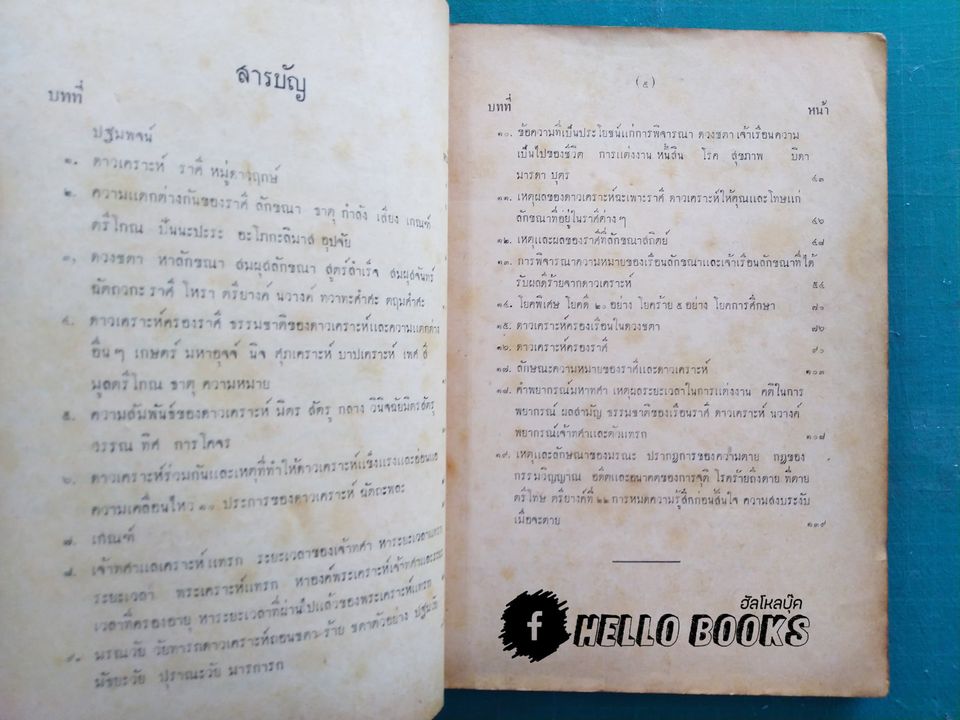 สารบัญ
บทที่
ปฐมพจน์
๑. ดาวเคราะห์ ราศี หมู่ดาวฤกษ์
๒. ความแตกต่างกันของราศี ลักขณา ธาตุ กำลัง เสียง เกณฑ์
ตรีโกณ ปั่นนะปะระ อะโภกะลิมาส อุปจัย
๓. ดวงชตา หาลักขณา สมผุสลักขณา สูตร์สำเร็จ สมผุสจันทร์
ฉัตถวกะ ราศี โหรา ตรียางค์ นวางค์ ทวาทะศำศะ ตฤมศำศะ
๔. ดาวเคราะห์ครองราศี ธรรมชาติของดาวเคราะห์และความแตกต่าง
อื่นๆ เกษตร์ มหาอุจจ์ นิจ ศุภเคราะห์ บาปเคราะห์ เพศ สี
มูลตรีโกณ ธาตุ ความหมาย
๕. ความสัมพันธ์ของดาวเคราะห์ มิตร สัตรู กลาง วินิจฉัยมิตรสัตรู
วรรณ ทิศ การโคจร
๖. ดาวเคราะห์ร่วมกันและเหตุที่ทำให้ดาวเคราะห์แข็งแรงและอ่อนแอ
ความเคลื่อนไหว ๑๐ ประการของดาวเคราะห์ ฉัตถะพละ
๗. เกณฑ์
๘. เจ้าทศาและเคราะห์แทรก ระยะเวลาของเจ้าทศา หาระยะเวลาแทรก
ระยะเวลา พระเคราะห์แทรก หาองค์พระเคราะห์เจ้าทศาและระยะ
เวลาที่ครองอายุ หาระยะเวลาที่ผ่านไปแล้วของพระเคราะห์แทรก
๙. มรณวัย วัยทารกดาวเคราะห์ถอนชตา-ร้าย ชตาตัวอย่าง ปฐมวัย
มัชยะวัย ปุราณะวัย มารการก
(๕)
บทที่ หน้า
๑๐. ข้อความที่เป็นประโยชน์แก่การพิจารณา ดวงชตา เจ้าเรือนความ
เป็นไปของชีวิต การแต่งงาน หนี้สิน โรค สุขภาพ บิดา
มารดา บุตร ๔๓
๑๑. เหตุผลของดาวเคราะห์ฉะเพาะราศี ดาวเคราะห์ให้คุณและโทษแก่
ลักขณาที่อยู่ในราศีต่างๆ ๔๖
๑๒. เหตุและผลของราศีที่ลักขณาสถิตย์ ๔๗
๑๓. การพิจารณาความหมายของเรือนลักขณาและเจ้าเรือนลักขณาที่ได้
รับผลดีร้ายจากดาวเคราะห์ ๕๔
๑๔. โยคพิเศษ โยคดี ๒๐ อย่าง โยคร้าย ๕ อย่าง โยคการศึกษา ๗๐
๑๕. ดาวเคราะห์ครองเรือนในดวงชตา ๗๖
๑๖. ดาวเคราะห์ครองราศี ๙๐
๑๗. ลักษณะความหมายของราศีและดาวเคราะห์ ๑๐๓
๑๘. คำพยากรณ์มหาทศา เหตุผลระยะเวลาในการแต่งงาน คติในการ
พยากรณ์ ผลสำมัญ ธรรมชาติของเรือนราศี ดาวเคราะห์ นวางค์
พยากรณ์เจ้าทศาและตัวแทรก ๑๐๗
๑๙. เหตุและลักษณาของมรณะ ปรากฏการของความตาย กฎของ
กรรมวิญญาณ อดีตและอนาคตของการจุติ โรคร้ายถึงตาย ที่ตาย
ตรีโทษ ตรียางค์ที่ ๒๒ การหมดความรู้สึกก่อนสิ้นใจ ความสงบระงับ
เมื่อจะตาย ๑๓๙
ฮัลโหลบุ๊ค
f HELLO BOOKS